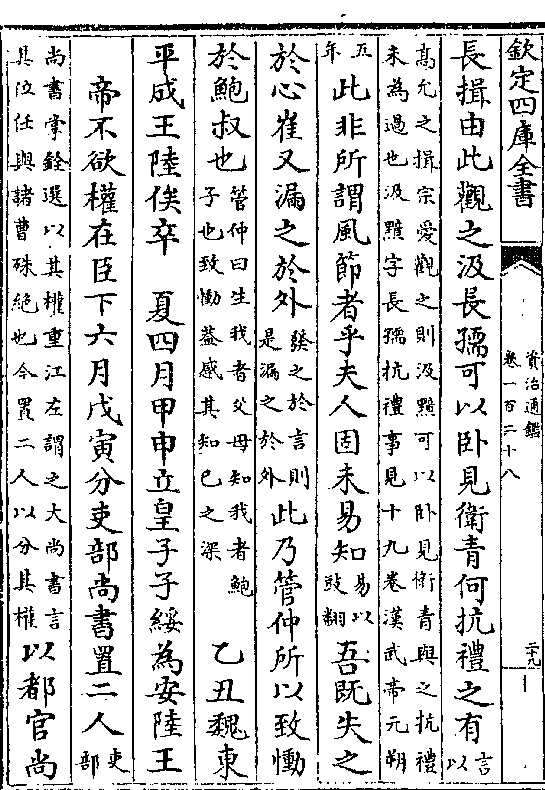 欽定四庫全書
資治通鑑
卷一百二十八
二十九
長揖由此觀之汲長孺可以卧見衛青何抗禮之有言以
髙允之揖宗愛觀之則汲黯可以卧見衛青與之抗禮
未為過也汲黯字長孺抗禮事見十九卷漢武帝元朔
五年此非所謂風節者乎夫人固未易知易以豉翻吾既失之
於心崔又漏之於外發之於言則是漏之於外此乃管仲所以致慟
於鮑叔也管仲曰生我者父母知我者鮑子也致慟葢感其知己之深乙丑魏東
平成王陸俟卒 夏四月甲申立皇子子綏為安陸王
帝不欲權在臣下六月戊寅分吏部尚書置二人吏部
尚書掌銓選以其權重江左謂之大尚書言
其位任與諸曹殊絶也今置二人以分其權以都官尚